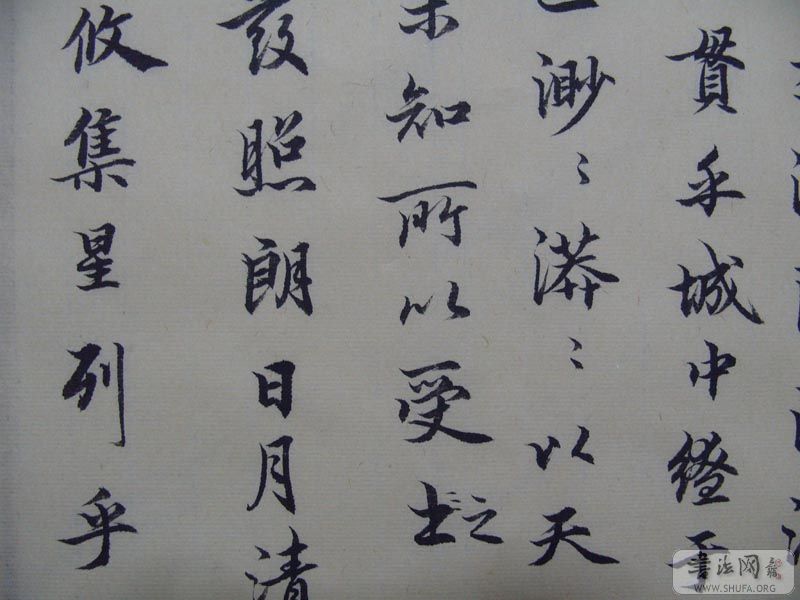 貫乎城中繚于
渺〻漭〻以天
未知所以受土之
發照朗日月清
攸集星列乎
書法网
WWW.SHUFA.ORG